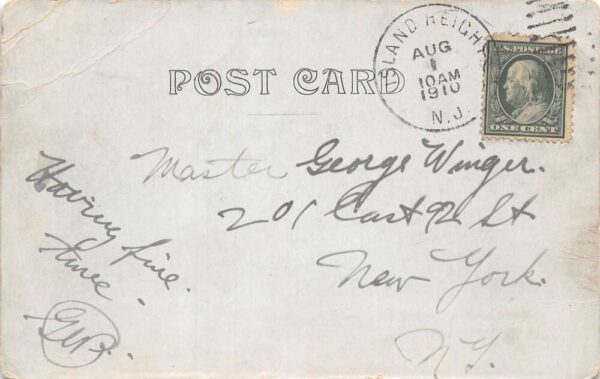 ISLAND HEIGHTS
AUG
1
10 AM
1910
N.J.
U.S. POSTAGE
ONE CENT
POST CARD
Master George Winger.
201 East 92 St
New York.
N.Y.
Having fine
time.